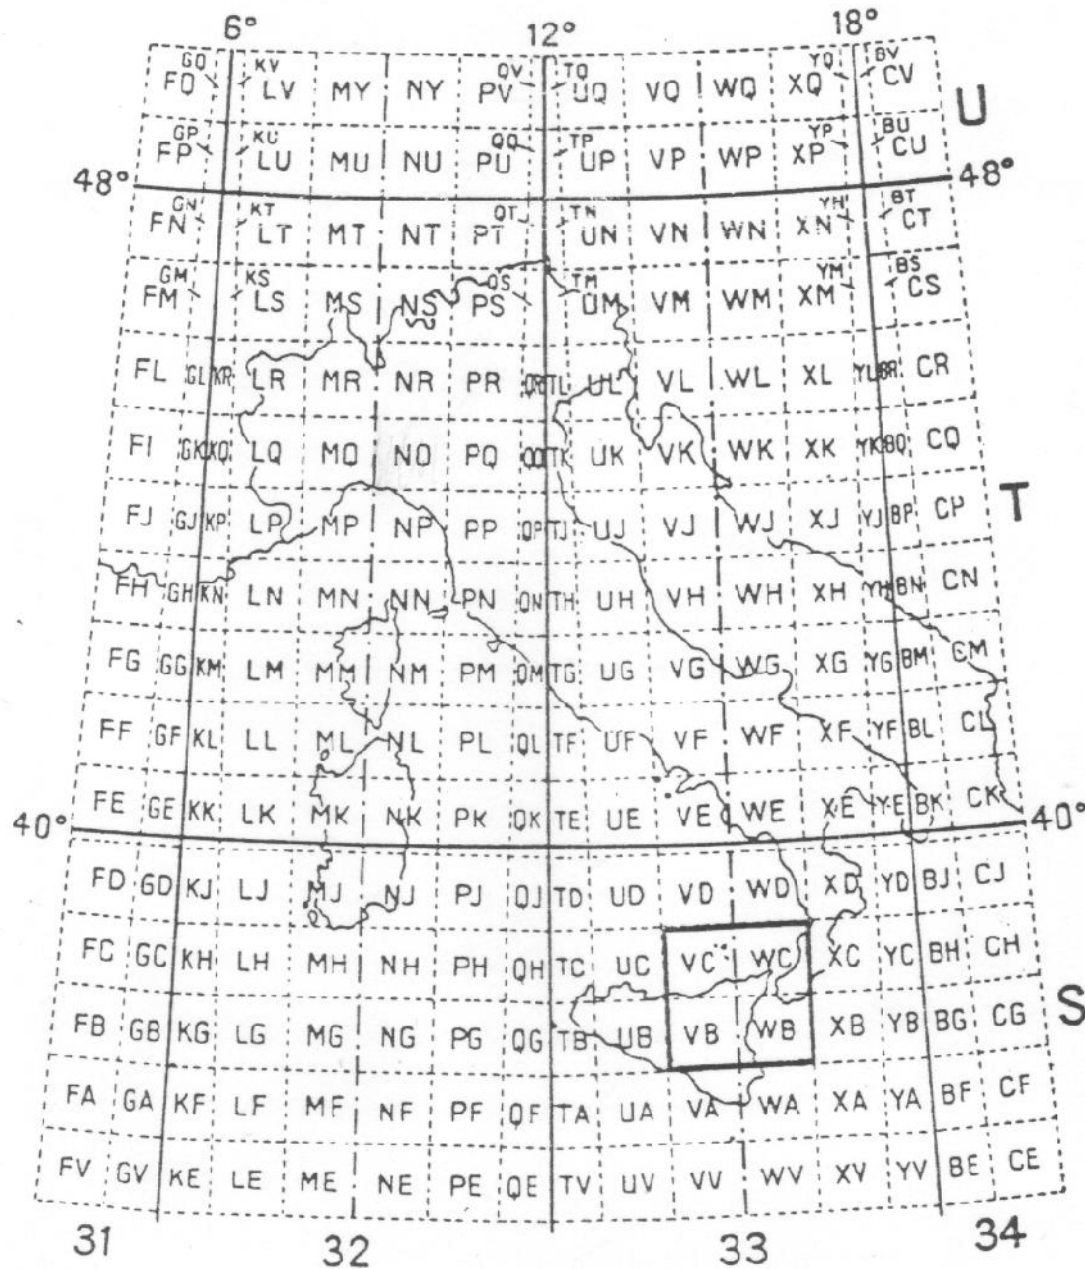 6° 12° 18°
GQ KV QV TQ YQ BV
FQ LV MY NY PV UQ VQ WQ XQ CV U
GP KU QQ TP YP BU
FP LU MU NU PU UP VP WP XP CU
48° 48°
GN KT QT TN YH BT
FN LT MT NT PT UN VN WN XN CT
GM KS QS TM YM BS
FM LS MS NS PS UM VM WM XM CS
FL GL KR LR MR NR PR QR TL UL VL WL XL YL BR CR
FI GK KQ LQ MQ NQ PQ QQ TK UK VK WK XK YK BQ CQ
FJ GJ KP LP MP NP PP QP TJ UJ VJ WJ XJ YJ BP CP T
FH GH KN LN MN NN PN QN TH UH VH WH XH YH BN CN
FG GG KM LM MM NM PM QM TG UG VG WG XG YG BM CM
FF GF KL LL ML NL PL QL TF UF VF WF XF YF BL CL
FE GE KK LK MK NK PK QK TE UE VE WE XE YE BK CK
40° 40°
FD GD KJ LJ MJ NJ PJ QJ TD UD VD WD XD YD BJ CJ
FC GC KH LH MH NH PH QH TC UC VC WC XC YC BH CH
FB GB KG LG MG NG PG QG TB UB VB WB XB YB BG CG S
FA GA KF LF MF NF PF QF TA UA VA WA XA YA BF CF
FV GV KE LE ME NE PE QE TV UV VV WV XV YV BE CE
31 32 33 34